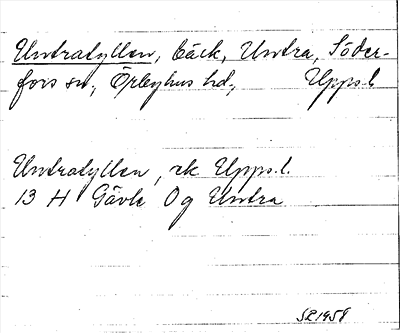 Untradyllen, bäck, Untra, Söder-
fors sn, Örbyhus hd, Upps.l
Untradyllen, rk Upps.l.
13 H Gävle Og Untra
SL 1958